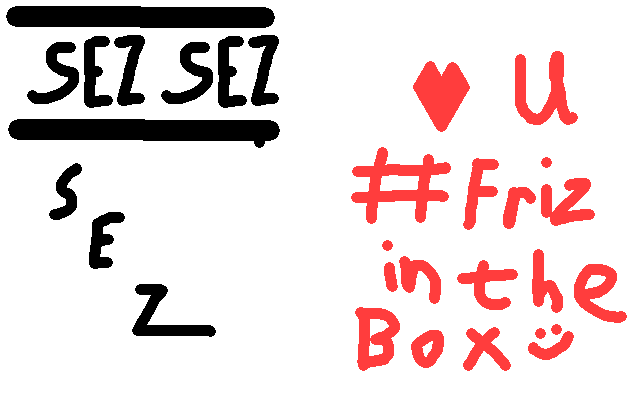 SEZ SEZ
S
E
Z
♥ U
#Friz
in the
Box :)